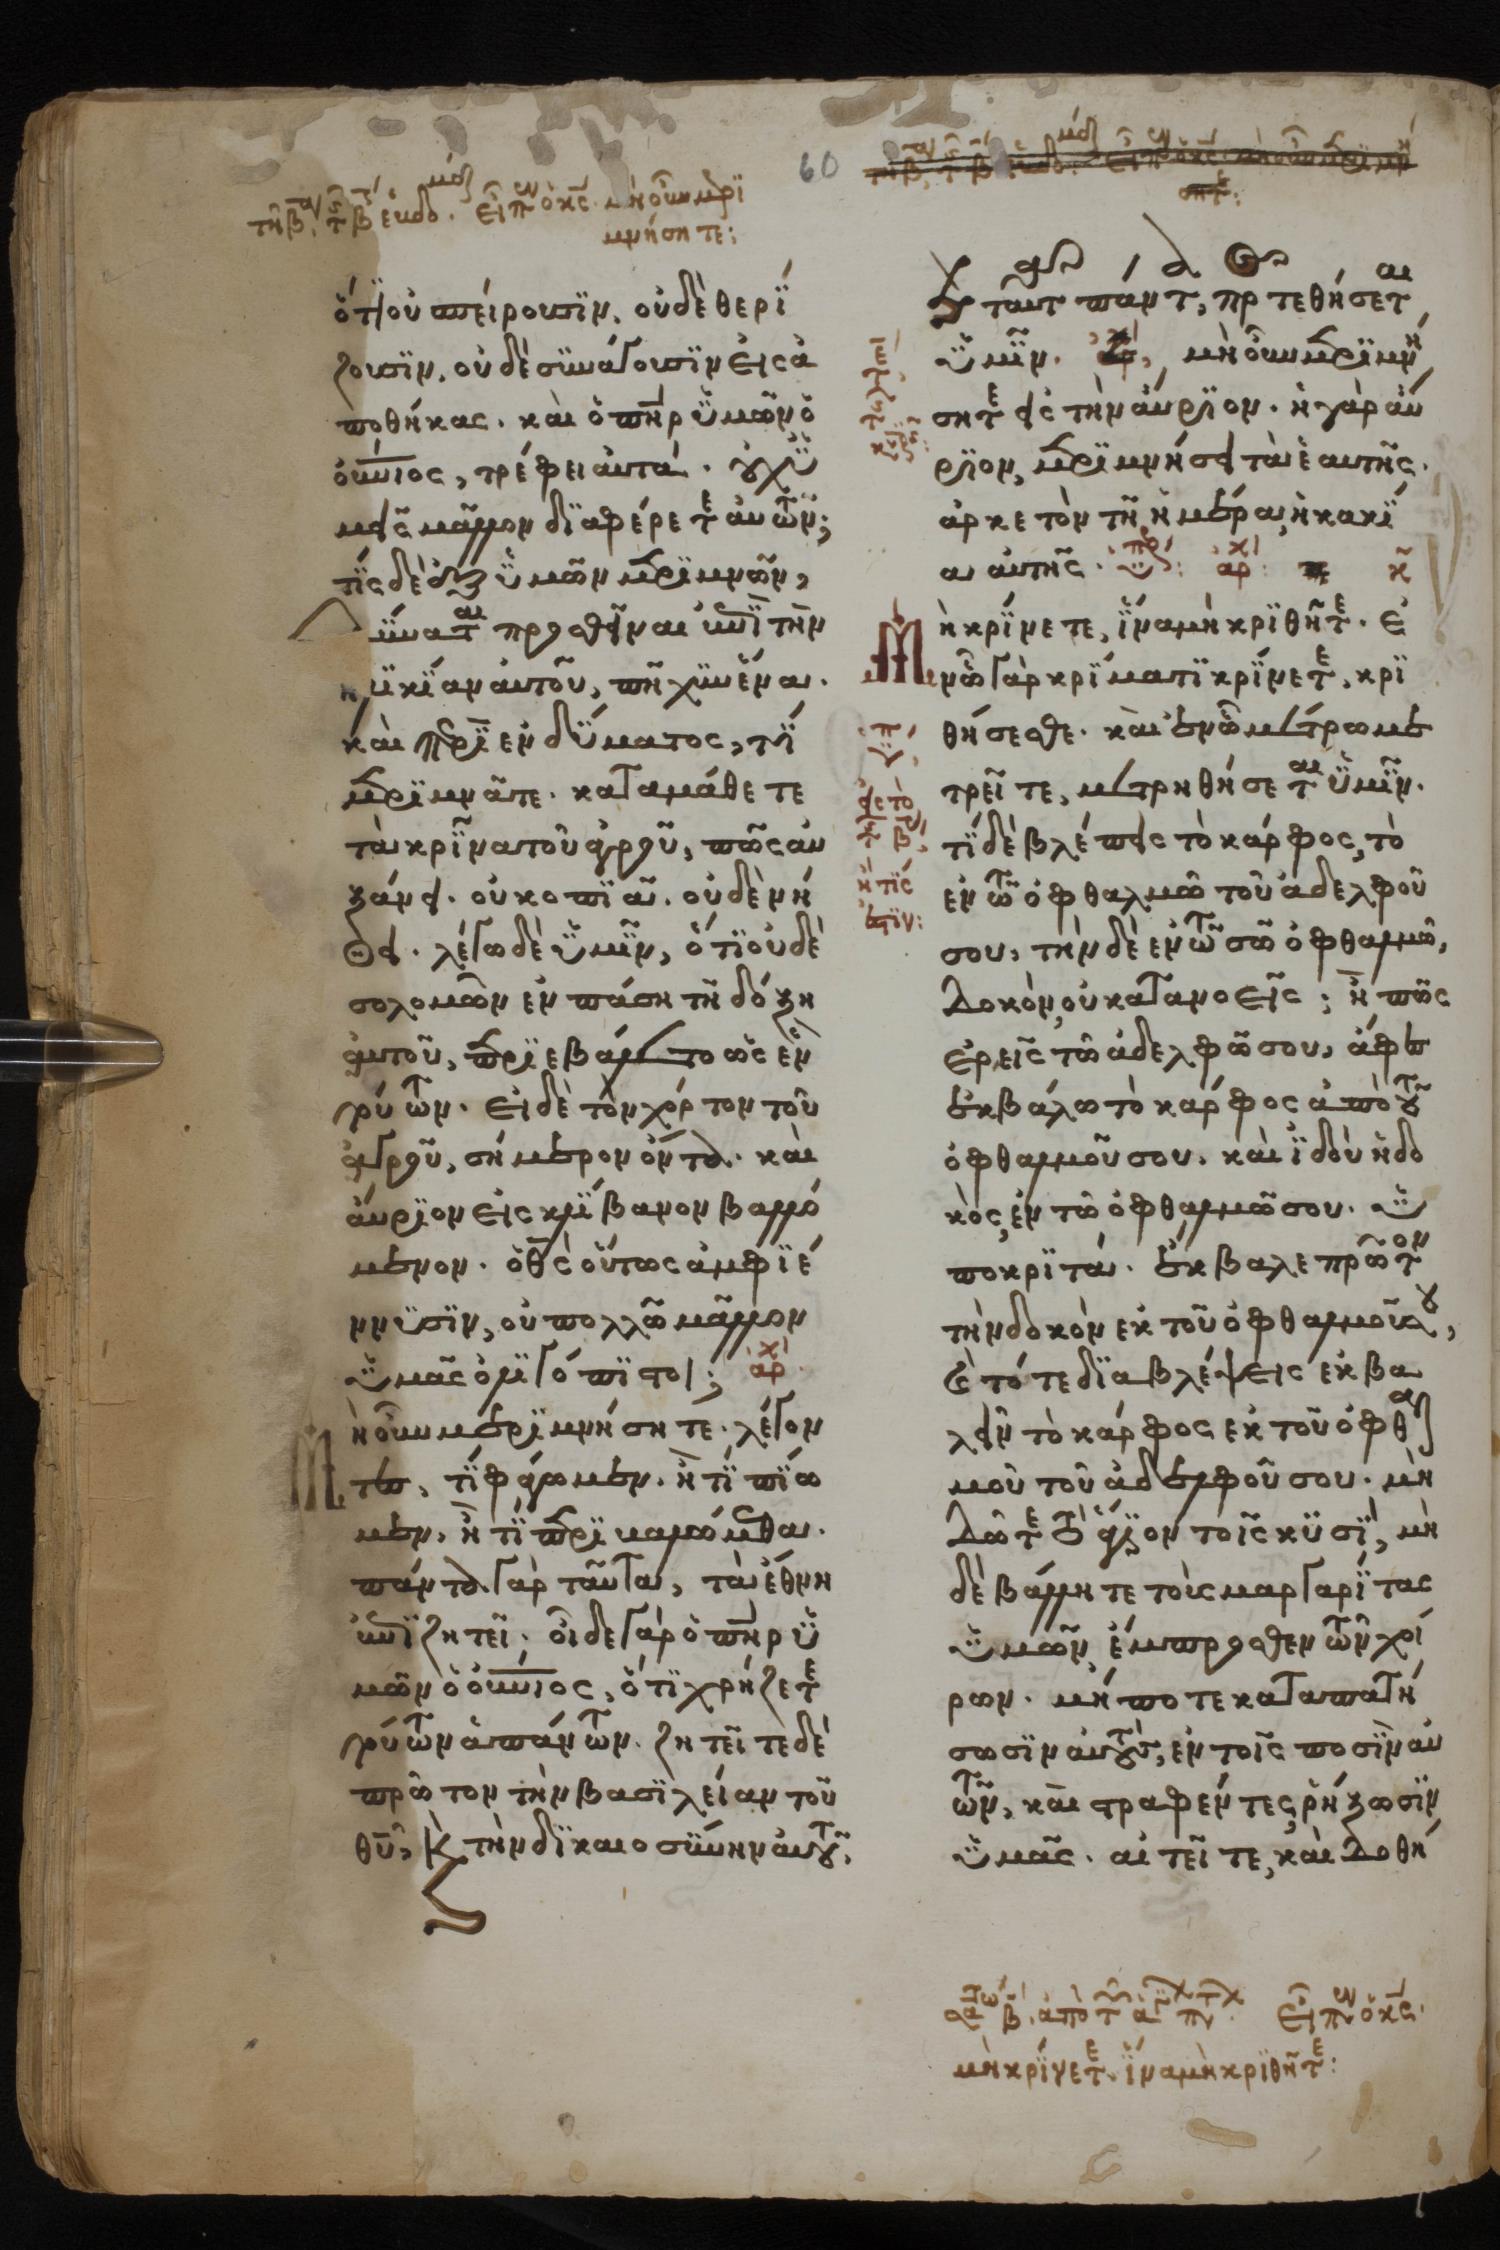 60
τῆ β τῆς β ἑβδομάδ. εἶπεν ὁ κς. μὴ οὖν μερϊ
μνήσητε:
ὅτϊ οὐ σπείρουσϊν, οὐδὲ θερί
ζουσϊν, οὐδὲ συνάγουσϊν εἰς ἀ
ποθήκας. καὶ ὁ πηρ ὑμῶν ὁ
οὐνιος, τρέφει αὐτά. οὐχ ὑ
μεῖς μᾶλλον δϊαφέρετε αὐτῶν;
τίς δὲ ἐξ ὑμῶν μερϊμνῶν,
δύναται προσθεῖναι ἐπὶ τὴν
ἡλϊκίαν αὐτοῦ, πῆχυν ἕνα.
καὶ περὶ ἐνδύματος, τί
μερϊμνᾶτε. καταμάθετε
τὰ κρίνα τοῦ ἀγροῦ, πῶς αὐ
ξάνει. οὐ κοπϊᾶ. οὐδὲ νή
θει. λέγω δὲ ὑμῖν, ὅτϊ οὐδὲ
σολομὼν ἐν πάση τῆ δόξη
αὐτοῦ, περϊεβάλετο ὡς ἓν
τούτων. εἰ δὲ τὸν χόρτον τοῦ
ἀγροῦ, σήμερον ὄντα. καὶ
αὔρϊον εἰς κλίβανον βαλλό
μενον. ὁ θς οὕτως ἀμφϊέ
ννυσϊν, οὐ πολλῶ μᾶλλον
ὑμᾶς ὀλϊγόπϊστοι; ἀρχ
Μὴ οὖν μερϊμνήσητε. λέγον
τες, τί φάγωμεν. ἢ τί πίω
μεν. ἢ τί περϊβαλώμεθα.
πάντα γὰρ ταῦτα, τὰ ἔθνη
ἐπϊζητεῖ. οἶδε γὰρ ὁ πηρ ὑ
μῶν ὁ οὐνιος, ὅτϊ χρήζετε
τούτων ἁπάντων. ζητεῖτε δὲ
πρῶτον τὴν βασϊλείαν τοῦ
θυ, κ τὴν δϊκαιοσύνην αὐτοῦ,
κ ταῦτα πάντα, προστεθήσεται
ὑμῖν. μὴ οὖν μερϊμνή
σητε εἰς τὴν αὔρϊον. ἡ γὰρ αὔ
ρϊον, μερϊμνήσει τὰ ἑαυτῆς.
ἀρκετὸν τῆ ἡμέρα, ἡ κακί
α αὐτῆς. ἀρχ
Μὴ κρίνετε, ἵνα μὴ κρϊθῆτε. ἐ
ν ὧ γὰρ κρίματϊ κρίνετε, κρϊ
θήσεσθε. καὶ ἐν ὧ μέτρω με
τρεῖτε, μετρηθήσεται ὑμῖν.
τί δὲ βλέπεις τὸ κάρφος, τὸ
ἐν τῶ ὀφθαλμῶ τοῦ ἀδελφοῦ
σου, τὴν δὲ ἐν τῶ σῶ ὀφθαλμῶ,
δοκὸν οὐ κατανοεῖς; ἢ πῶς
ἐρεῖς τῶ ἀδελφῶ σου, ἄφες
ἐκβάλω τὸ κάρφος ἀπὸ τοῦ
ὀφθαλμοῦ σου. καὶ ἰδοὺ ἡ δο
κὸς, ἐν τῶ ὀφθαλμῶ σου. ὑ
ποκρϊτά. ἔκβαλε πρῶτον
τὴν δοκὸν ἐκ τοῦ ὀφθαλμοῦ σου,
κ τότε δϊαβλέψεις ἐκβα
λεῖν τὸ κάρφος ἐκ τοῦ ὀφθαλ
μοῦ τοῦ ἀδελφοῦ σου. μὴ
δῶτε τὸ ἅγϊον τοῖς κυσὶ, μὴ
δὲ βάλλητε τοὺς μαργαρίτας
ὑμῶν, ἔμπροσθεν τῶν χοί
ρων. μήποτε καταπατή
σωσϊν αὐτοὺς, ἐν τοῖς ποσὶν αὐ
τῶν, καὶ στραφέντες, ῥήξωσϊν
ὑμᾶς. αἰτεῖτε, καὶ δοθή
εἶπεν ὁ κς.
μὴ κρίνετε. ἵνα μὴ κρϊθῆτε: